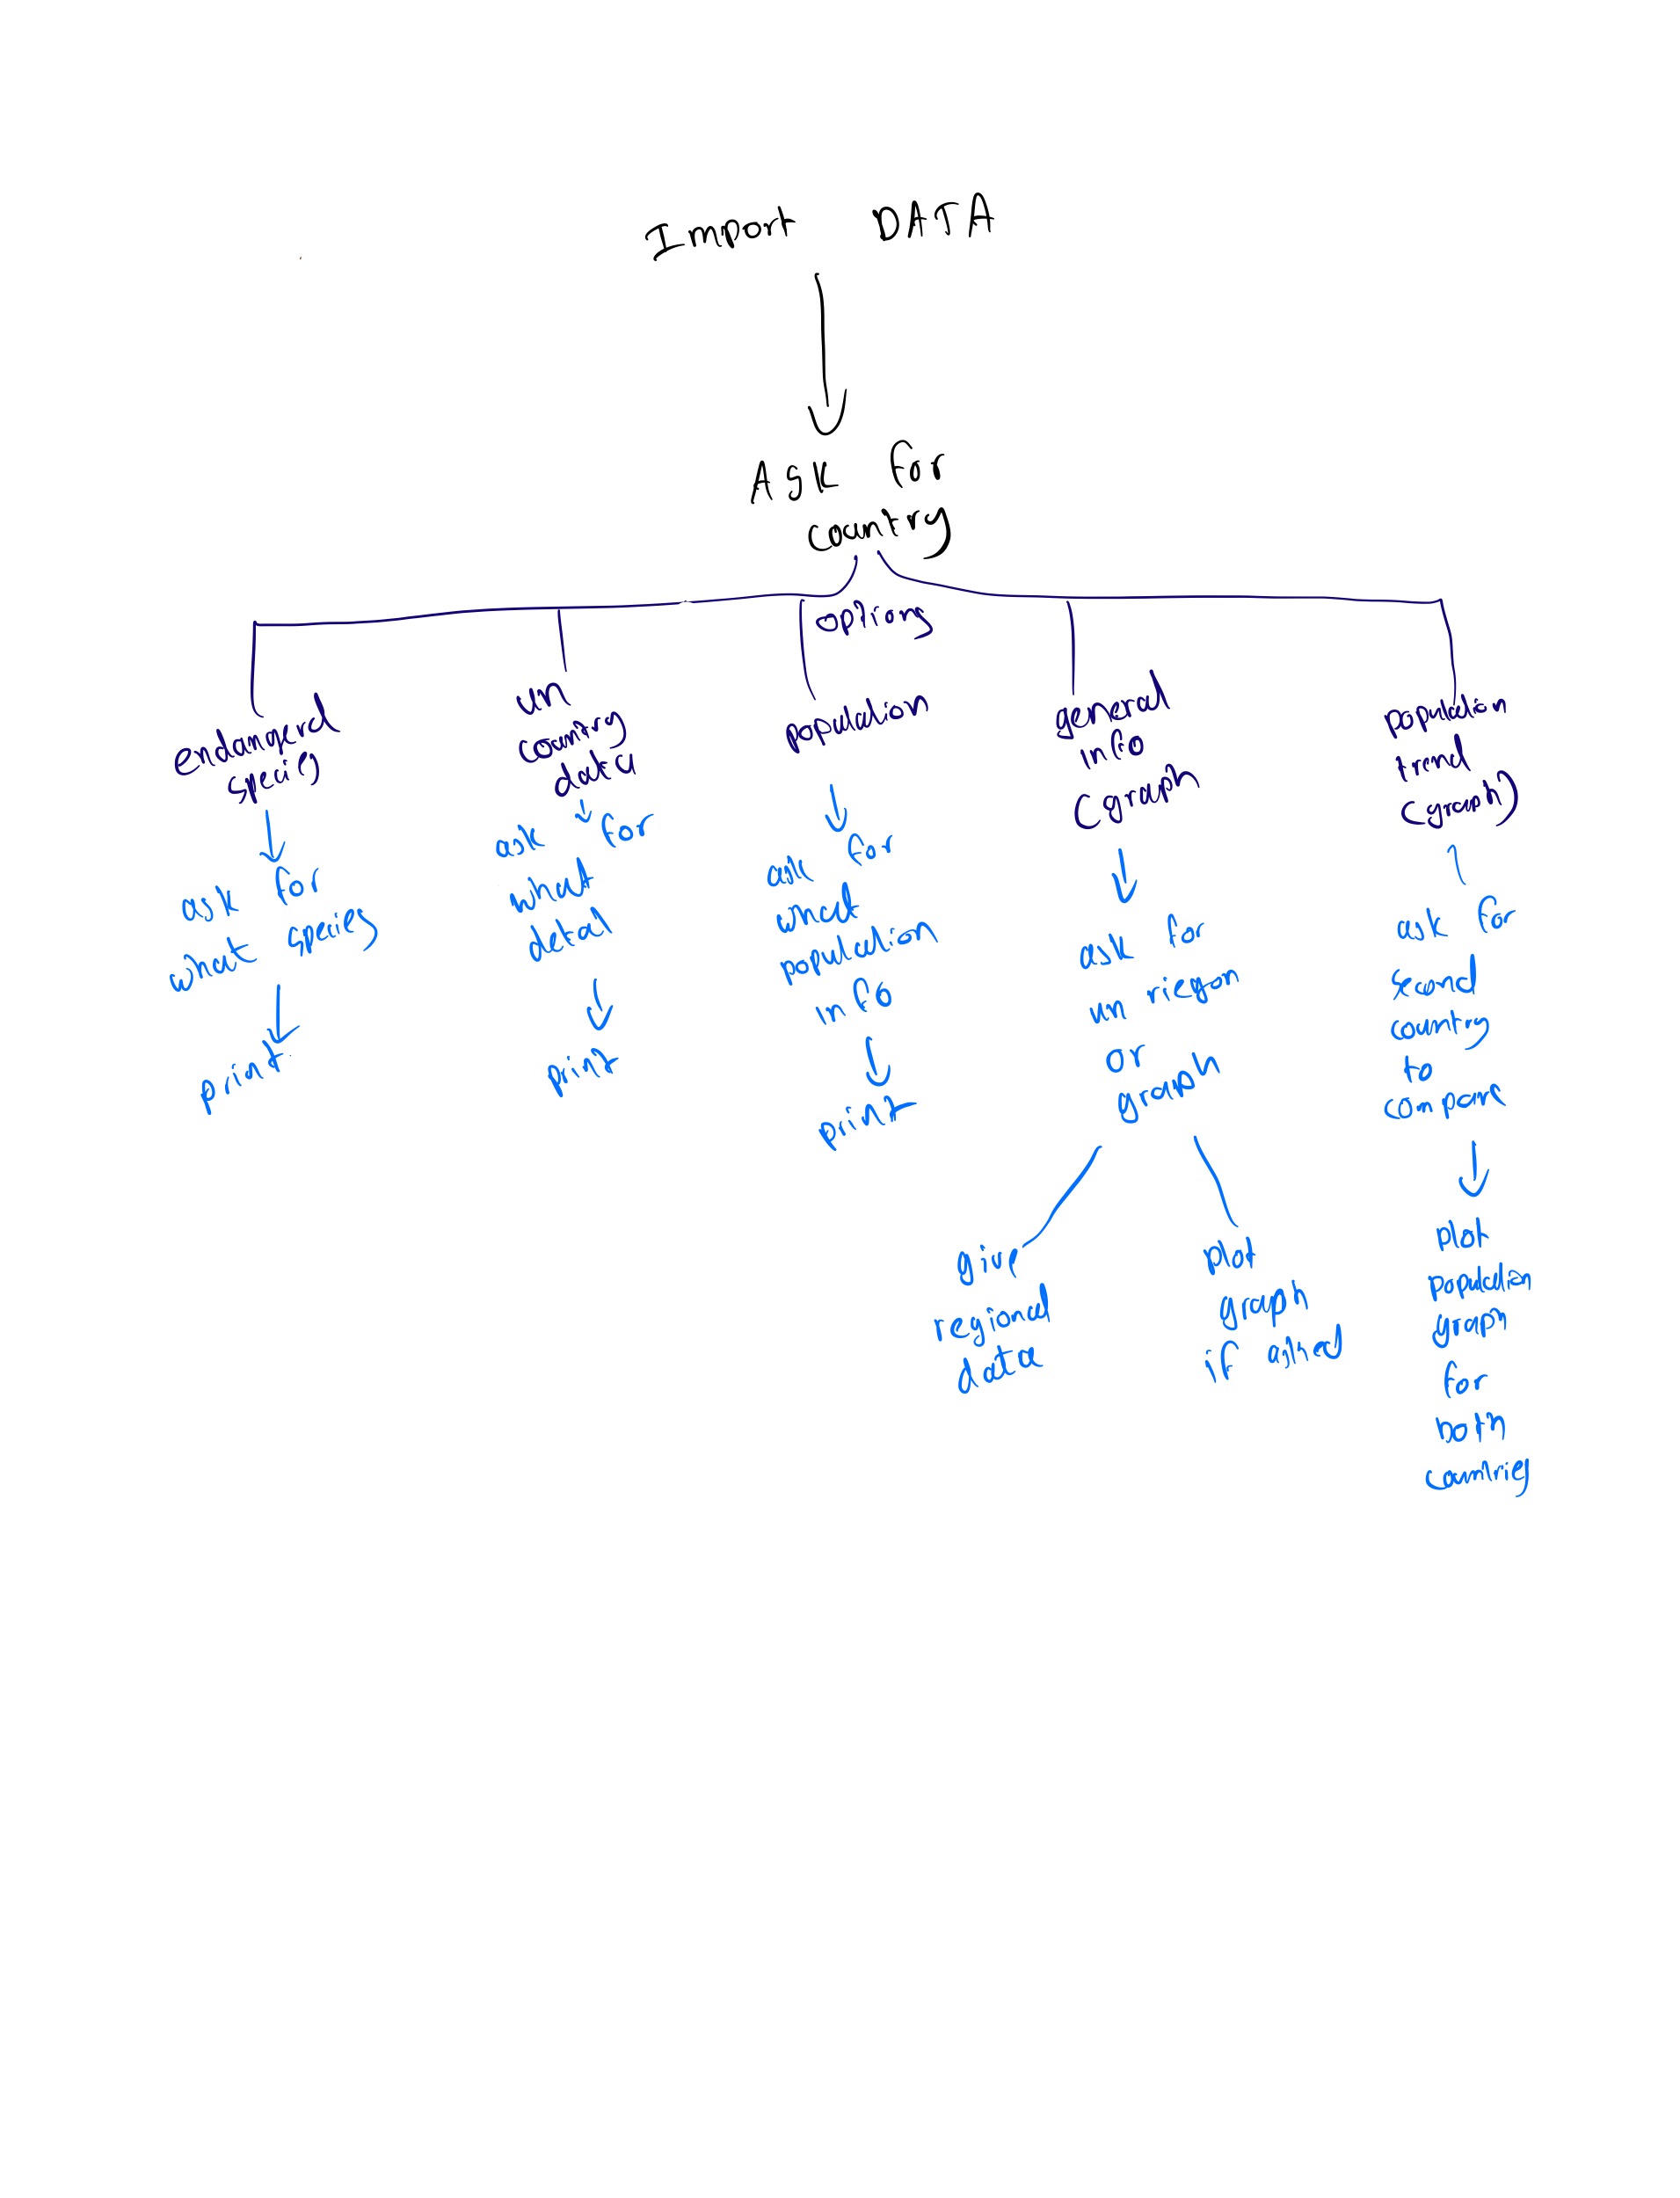 Import DATA
Ask for
country
options
endangered
species
ask for
what species
print
un
country
data
ask for
what
detail
print
population
ask for
what
population
info
print
general
info
(graph
ask for
un riegon
or
graph
give
regional
data
plot
graph
if asked
population
trend
(graph)
ask for
second
country
to
compare
plot
population
graph
for
both
countries